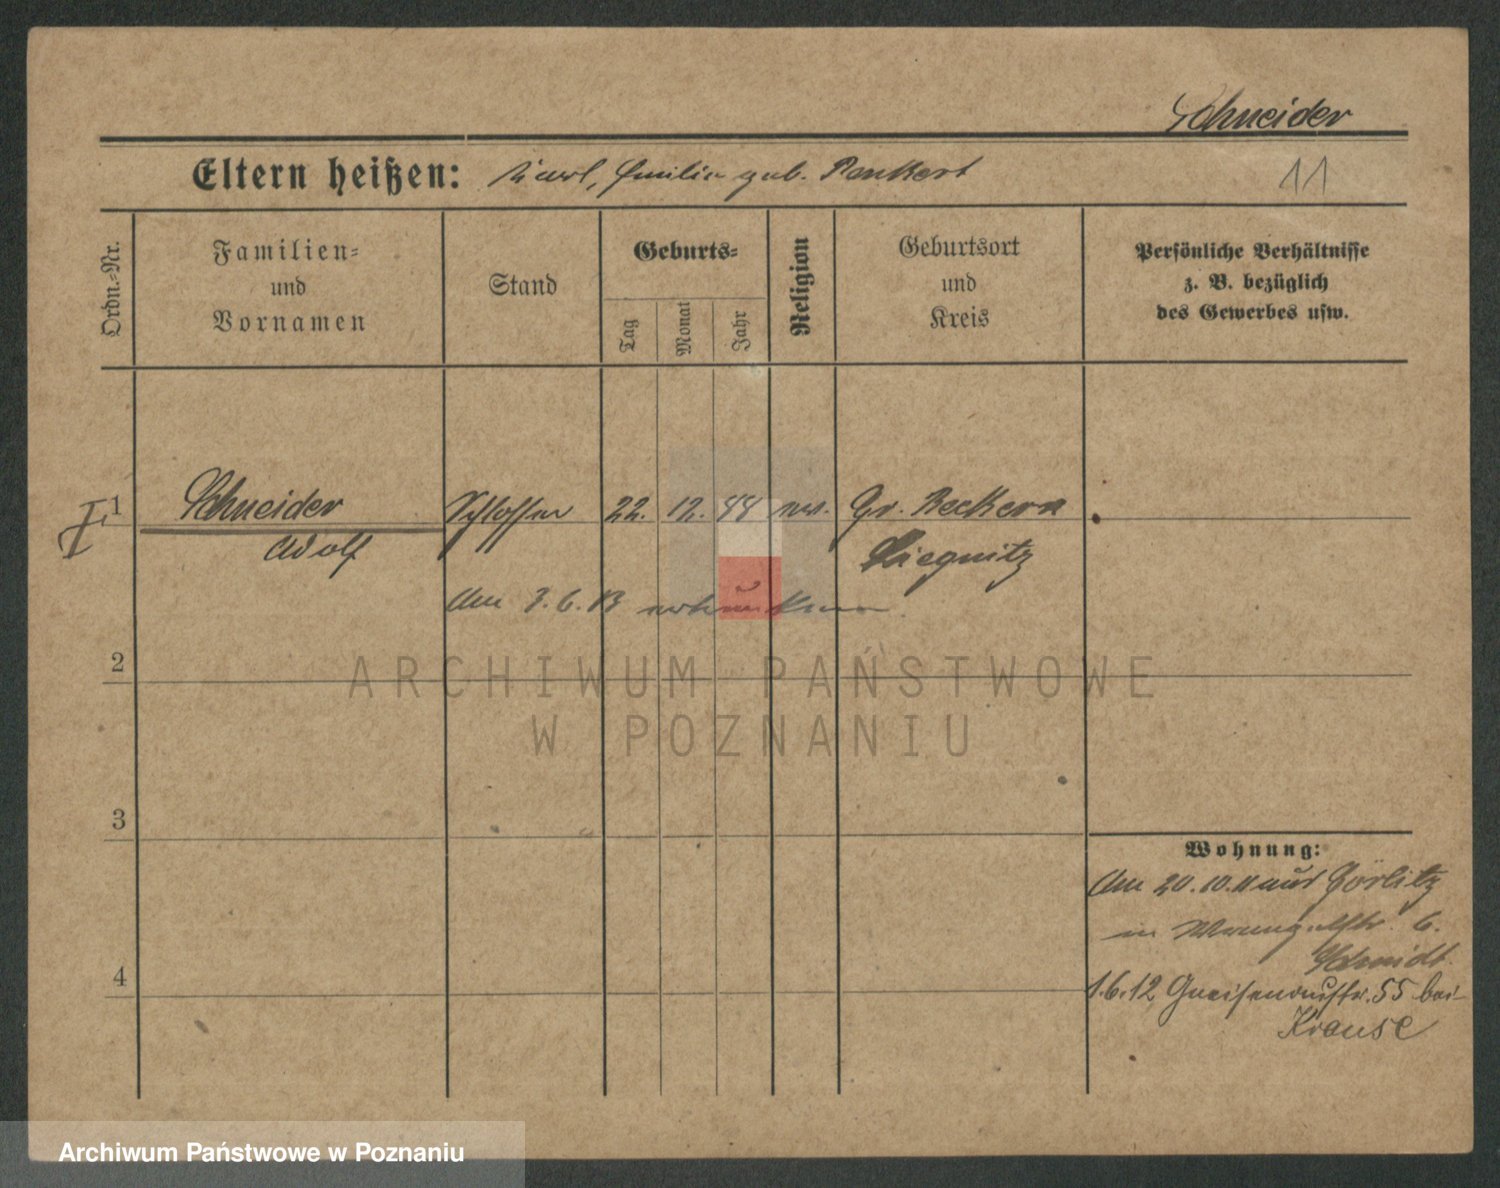 Schneider
Eltern heißen: Karl, Emilie geb. Penkert
11
Ordn.-Nr.
Familien-
und
Vornamen
Stand
Geburts-
Tag
Monat
Jahr
Religion
Geburtsort
und
Kreis
Persönliche Verhältnisse
z. B. bezüglich
des Gewerbes usw.
1
Schneider
Adolf
Schlosser
22. 12. 44
ev.
Gr. Beckern
Liegnitz
Am 3. 6. 13 ertrunken.
2
ARCHIWUM PAŃSTWOWE
W POZNANIU
3
4
Wohnung:
Am 20. 10. 11 aus Görlitz
in Wrangelstr. 6.
Schmidt.
1. 6. 12 Gneisenaustr. 55 bei
Krause
Archiwum Państwowe w Poznaniu